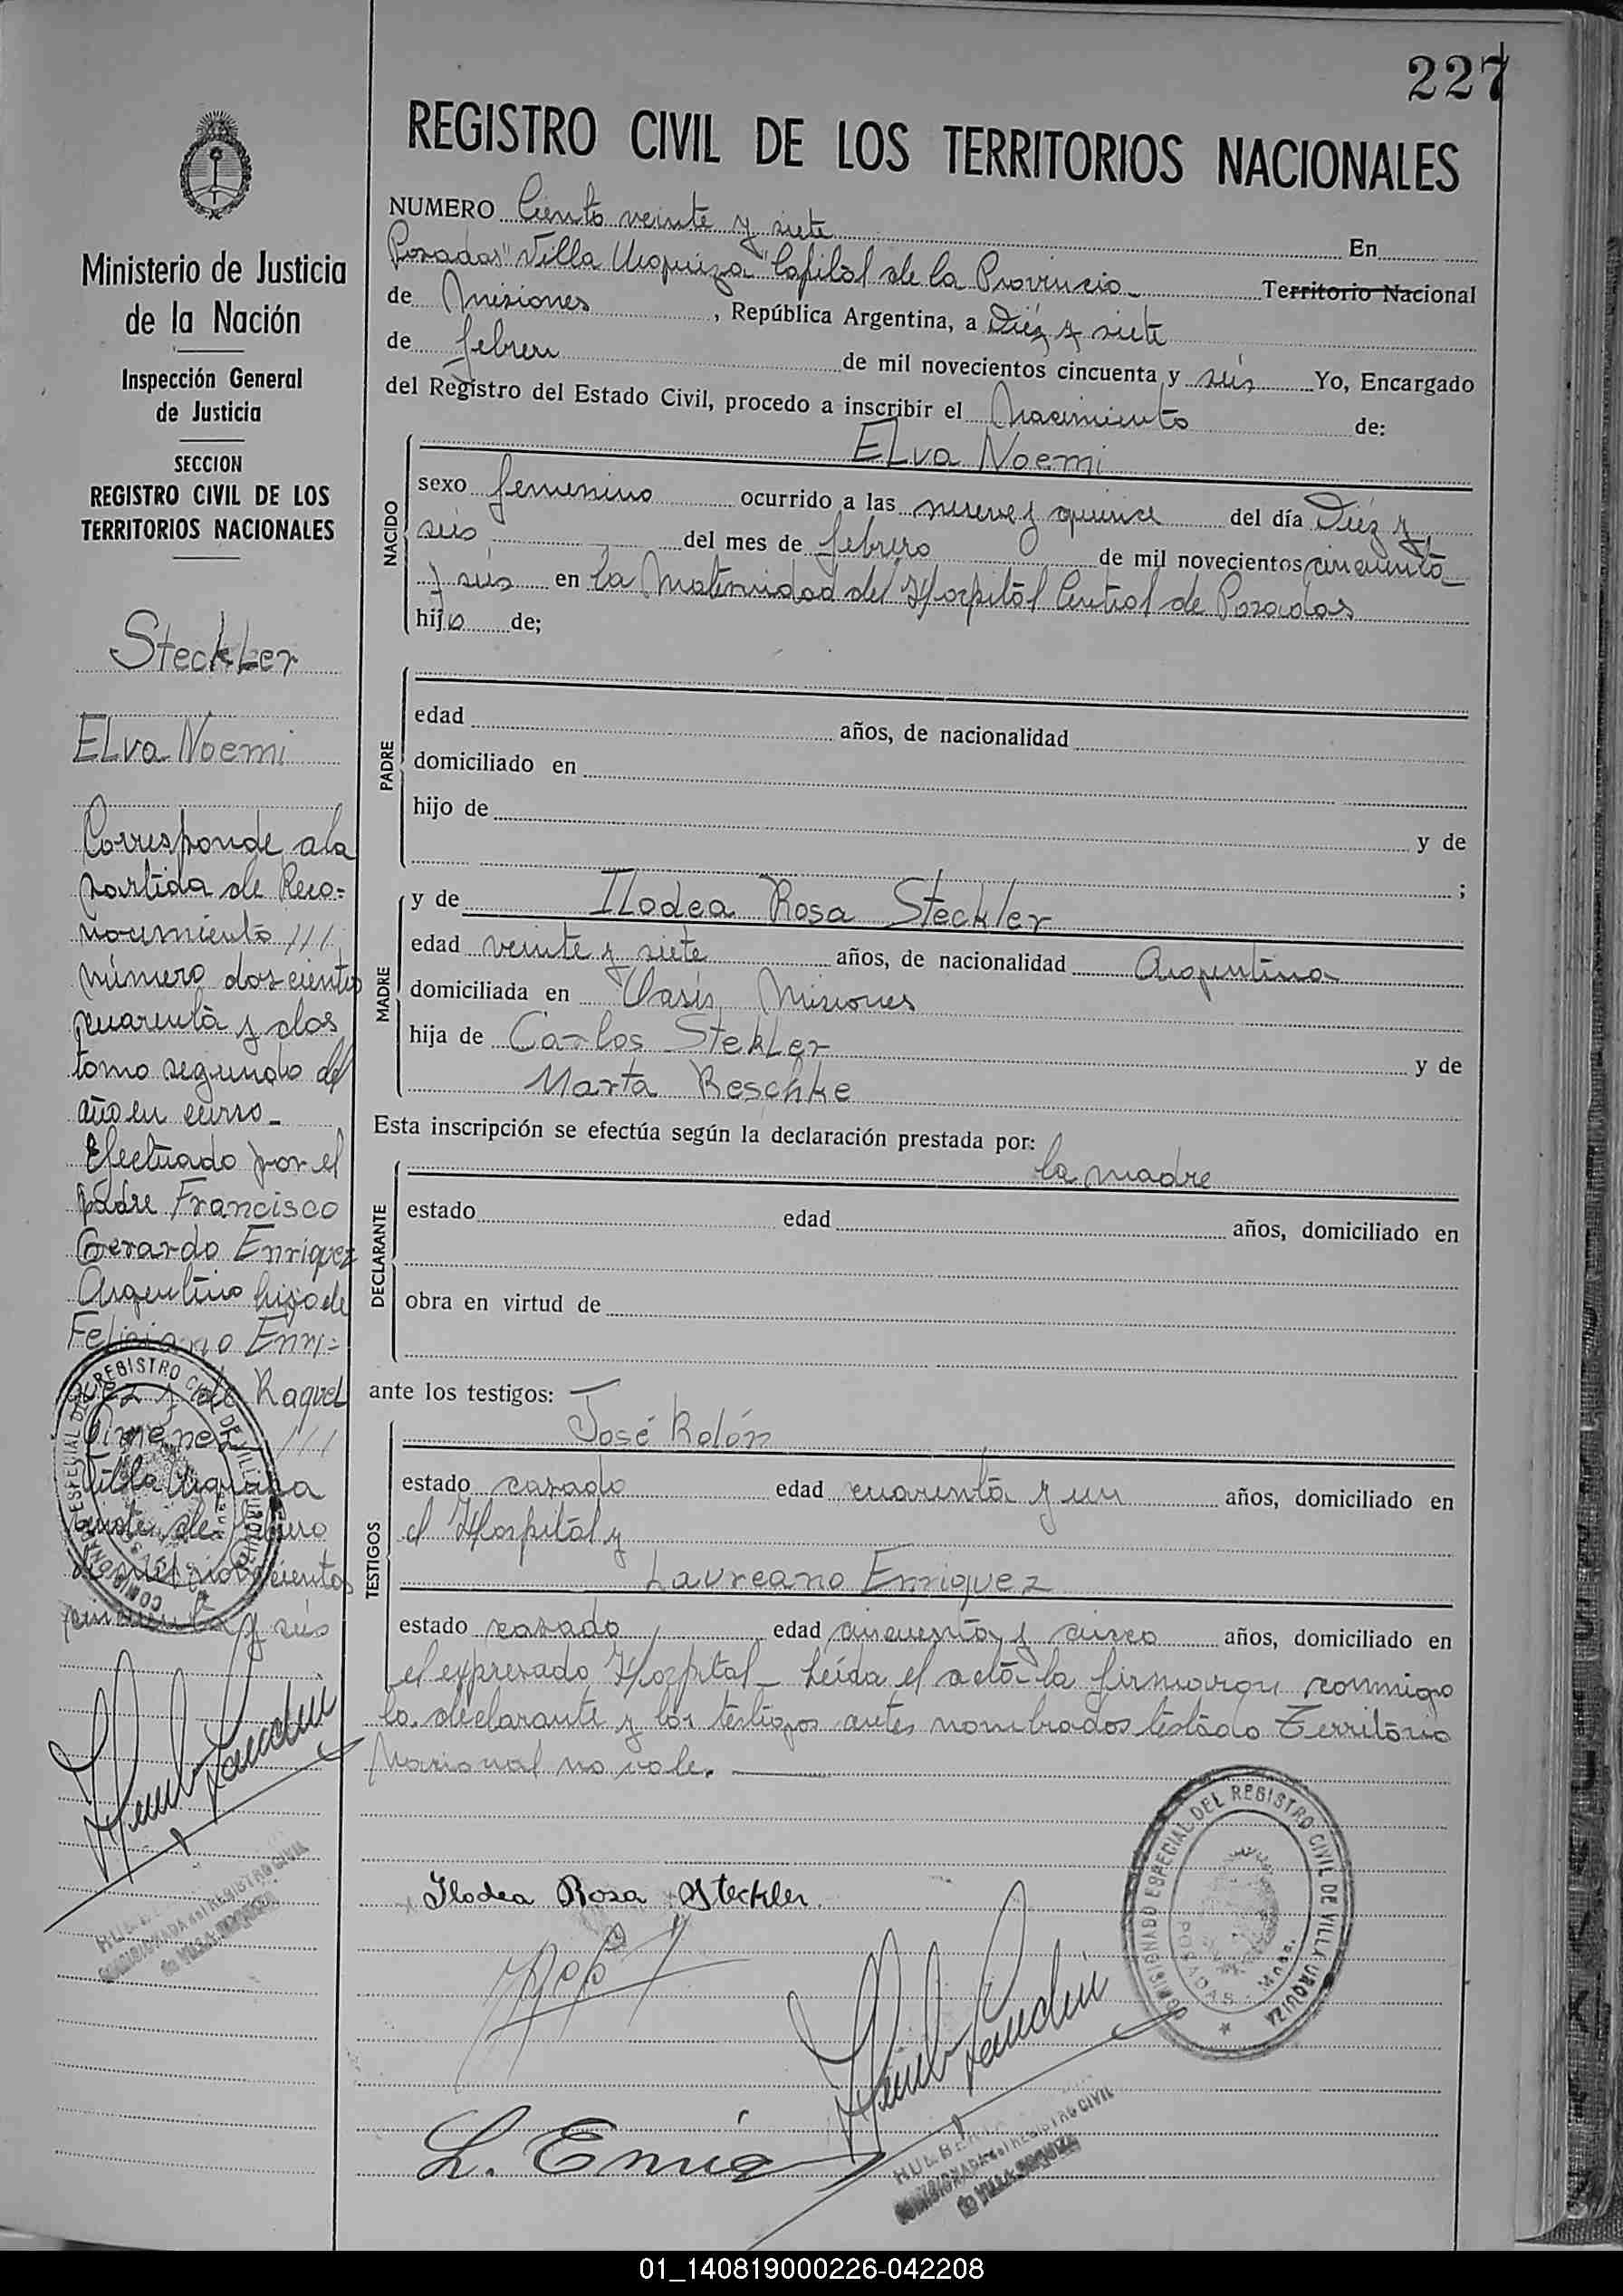 227
REGISTRO CIVIL DE LOS TERRITORIOS NACIONALES
NUMERO Ciento veinte y siete En
Posadas "Villa Urquiza" Capital de la Provincia Territorio Nacional
de Misiones, República Argentina, a Diéz y siete
de febrero de mil novecientos cincuenta y seis Yo, Encargado
del Registro del Estado Civil, procedo a inscribir el Nacimiento de:
NACIDO
ELva Noemi
sexo femenino ocurrido a las nueve y quince del día Diéz y
seis del mes de febrero de mil novecientos cincuenta
y seis en la Maternidad del Hospital Central de Posadas
hija de;
PADRE
edad años, de nacionalidad
domiciliado en
hijo de y de
;
MADRE
y de ILodea Rosa Steckler
edad veinte y siete años, de nacionalidad Argentina
domiciliada en Oasis Misiones
hija de Carlos StekLer y de
Marta Reschke
Esta inscripción se efectúa según la declaración prestada por:
DECLARANTE
la madre
estado edad años, domiciliado en
obra en virtud de
ante los testigos:
TESTIGOS
José Rolón
estado casado edad cuarenta y un años, domiciliado en
el Hospital y
Laureano Enriquez
estado casado edad cincuenta y cinco años, domiciliado en
el expresado Hospital_ Leída el acta la firmaron conmigo
la declarante y los testigos antes nombrados testado Territorio
Nacional no vale.
Ilodea Rosa Steckler
L. Enriq
COMISIONADO ESPECIAL DEL REGISTRO CIVIL DE VILLA URQUIZA
POSADAS - Mnes.
COMISIONADA del REGISTRO CIVIL
de VILLA URQUIZA
Ministerio de Justicia
de la Nación
Inspección General
de Justicia
SECCION
REGISTRO CIVIL DE LOS
TERRITORIOS NACIONALES
SteckLer
ELva Noemi
Corresponde a la
partida de Reco=
nocimiento ///
número doscientos
cuarenta y dos
tomo segundo del
año en curso_
Efectuado por el
padre Francisco
Gerardo Enriquez
Argentino hijo de
Feliciano Enri=
quez y de Raquel
Gimenez ///
Villa Urquiza
veinte de febrero
de mil novecientos
cincuenta y seis
COMISIONADO ESPECIAL DEL REGISTRO CIVIL DE VILLA URQUIZA
COMISIONADA del REGISTRO CIVIL
de VILLA URQUIZA
01_140819000226-042208